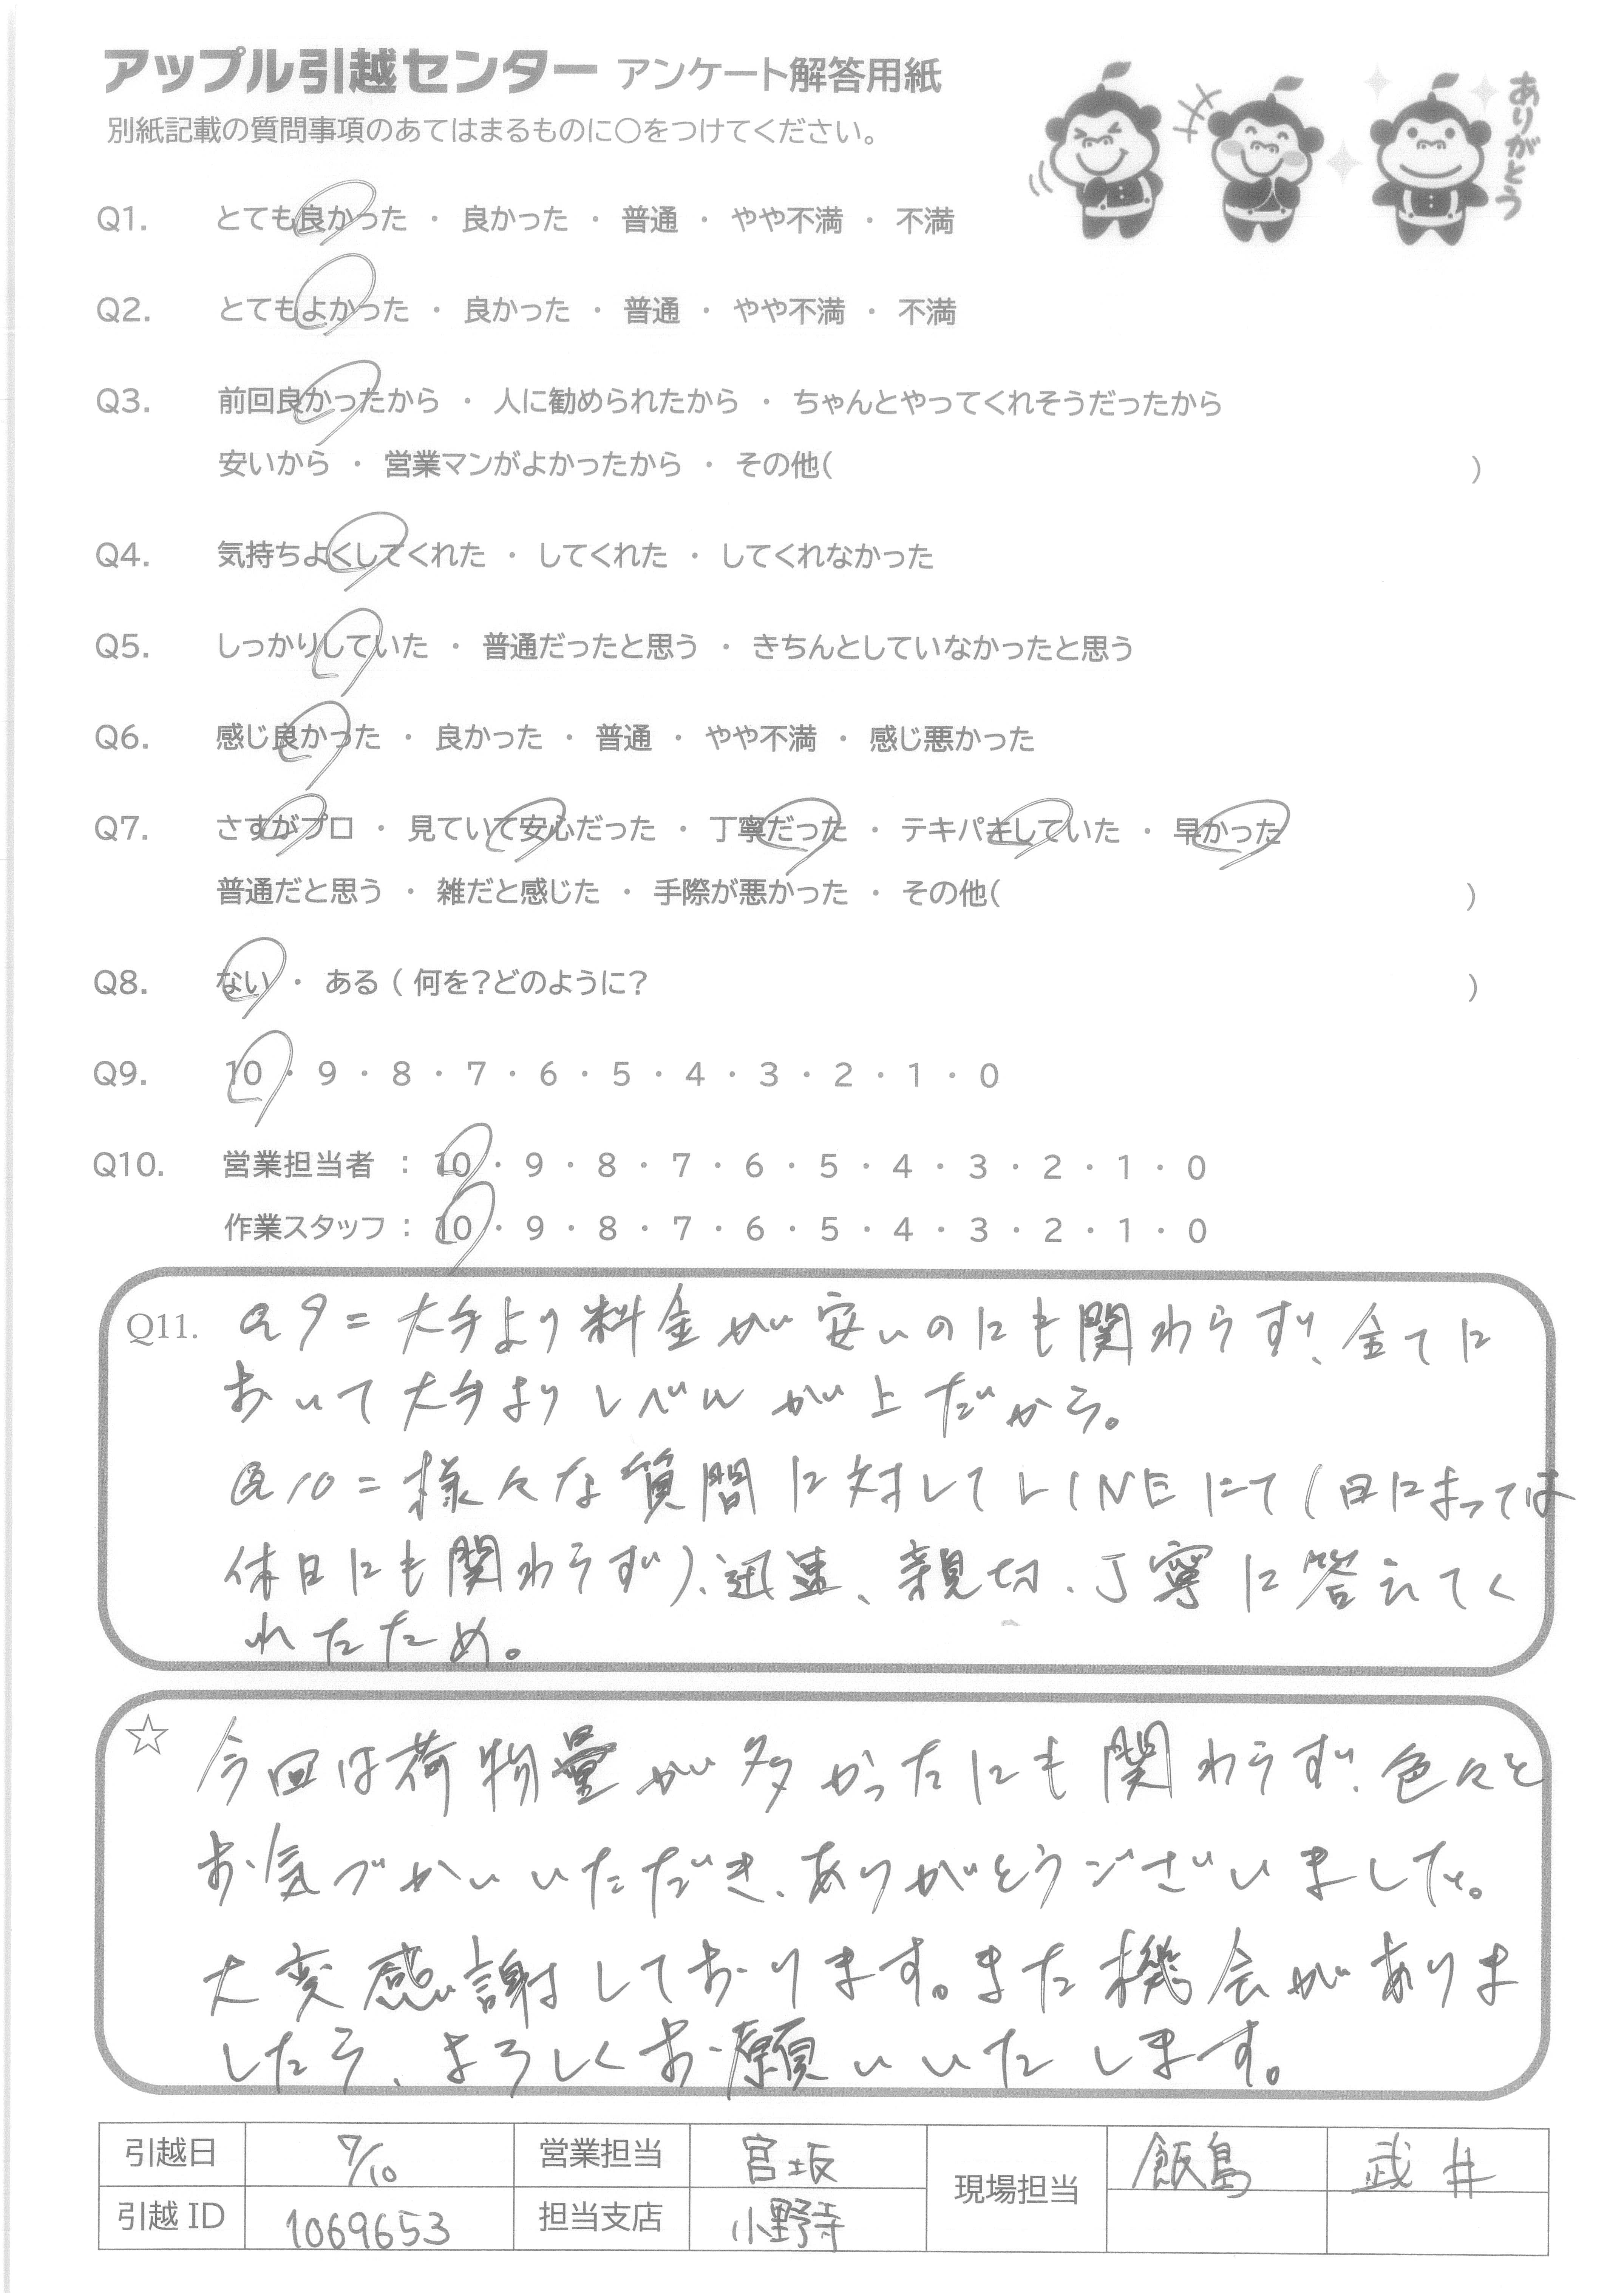 アップル引越センター アンケート解答用紙
別紙記載の質問事項のあてはまるものに○をつけてください。
ありがとう
Q1. とても良かった ・ 良かった ・ 普通 ・ やや不満 ・ 不満
Q2. とてもよかった ・ 良かった ・ 普通 ・ やや不満 ・ 不満
Q3. 前回良かったから ・ 人に勧められたから ・ ちゃんとやってくれそうだったから
安いから ・ 営業マンがよかったから ・ その他( )
Q4. 気持ちよくしてくれた ・ してくれた ・ してくれなかった
Q5. しっかりしていた ・ 普通だったと思う ・ きちんとしていなかったと思う
Q6. 感じ良かった ・ 良かった ・ 普通 ・ やや不満 ・ 感じ悪かった
Q7. さすがプロ ・ 見ていて安心だった ・ 丁寧だった ・ テキパキしていた ・ 早かった
普通だと思う ・ 雑だと感じた ・ 手際が悪かった ・ その他( )
Q8. ない ・ ある ( 何を?どのように? )
Q9. 10 ・ 9 ・ 8 ・ 7 ・ 6 ・ 5 ・ 4 ・ 3 ・ 2 ・ 1 ・ 0
Q10. 営業担当者 : 10 ・ 9 ・ 8 ・ 7 ・ 6 ・ 5 ・ 4 ・ 3 ・ 2 ・ 1 ・ 0
作業スタッフ : 10 ・ 9 ・ 8 ・ 7 ・ 6 ・ 5 ・ 4 ・ 3 ・ 2 ・ 1 ・ 0
Q11. Q9=大手より料金が安いのにも関わらず、全てに
おいて大手よりレベルが上だから。
Q10=様々な質問に対してLINEにて(日によっては
休日にも関わらず)、迅速、親切、丁寧に答えてく
れたため。
☆ 今回は荷物量が多かったにも関わらず、色々と
お気づかいいただき、ありがとうございました。
大変感謝しております。また機会がありま
したら、よろしくお願いいたします。
引越日 7/10 営業担当 宮坂 現場担当 飯島 武井
引越ID 1069653 担当支店 小野寺